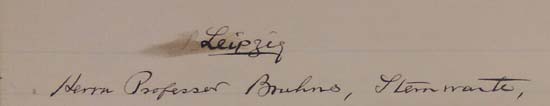 Leipzig
Herrn Professor Bruhns, Sternwarte,